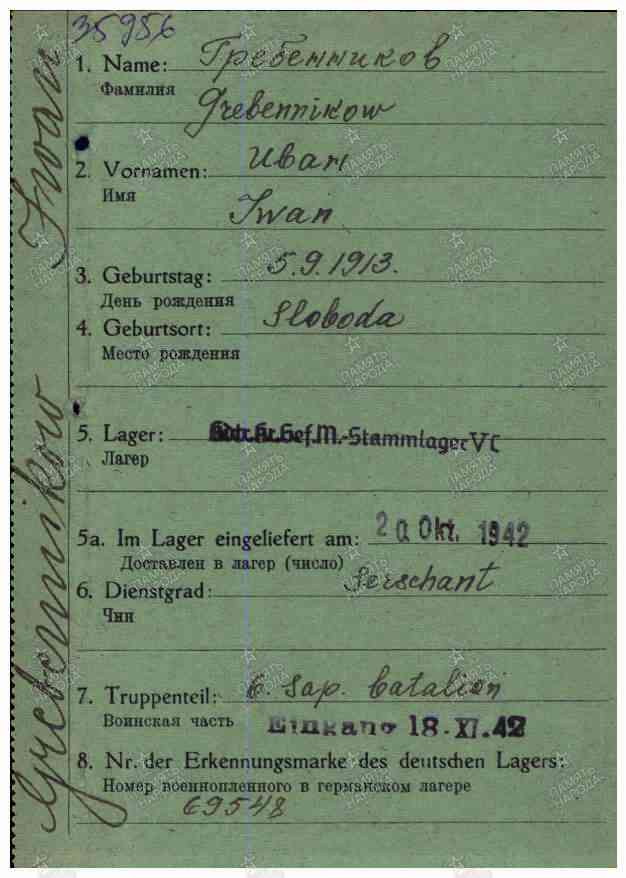 35956
1. Name: Гребенников
Фамилия
Grebennikow
2. Vornamen: Иван
Имя
Iwan
3. Geburtstag: 5.9.1913.
День рождения
4. Geburtsort: Sloboda
Место рождения
5. Lager: Gef.M.-Stammlager VI C
Лагер
5a. Im Lager eingeliefert am: 20. Okt. 1942
Доставлен в лагер (число)
6. Dienstgrad: Serschant
Чин
7. Truppenteil: 6. Sap. Batalion
Воинская часть Eingang 18. XI. 42
8. Nr. der Erkennungsmarke des deutschen Lagers:
Номер военнопленного в германском лагере
69548
Grebennikow Iwan
ПАМЯТЬ
НАРОДА